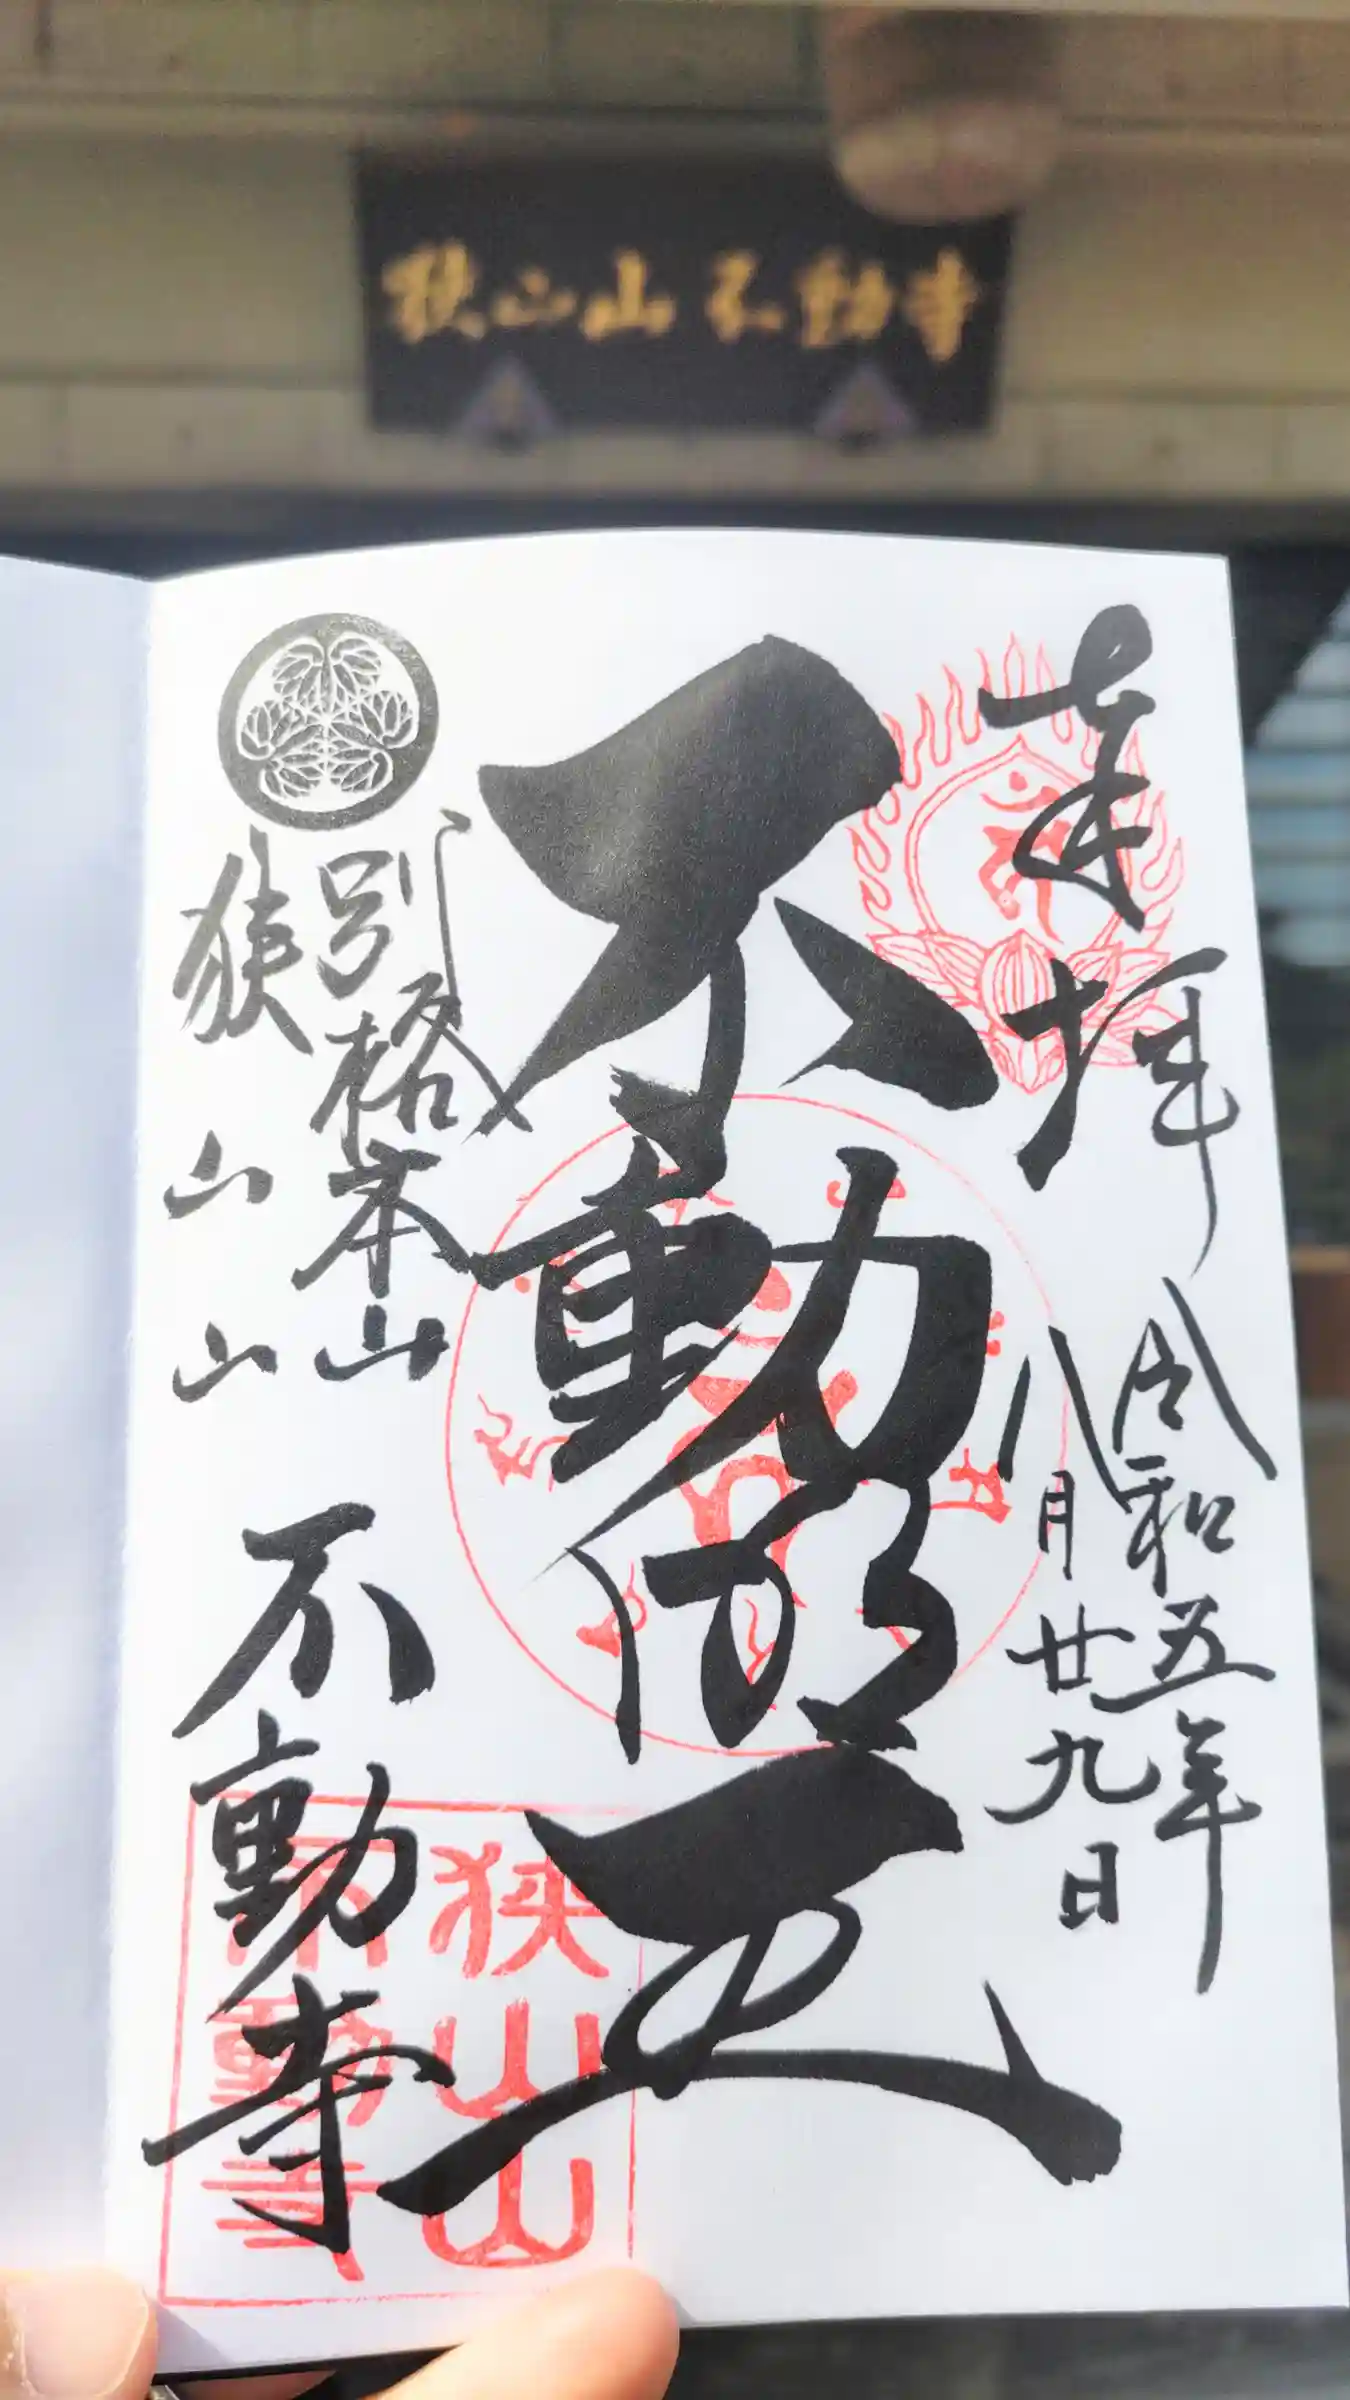 狭山山不動寺
奉拝
令和五年
八月廿九日
不動明王
別格本山
狭山山 不動寺
狭山山
不動寺